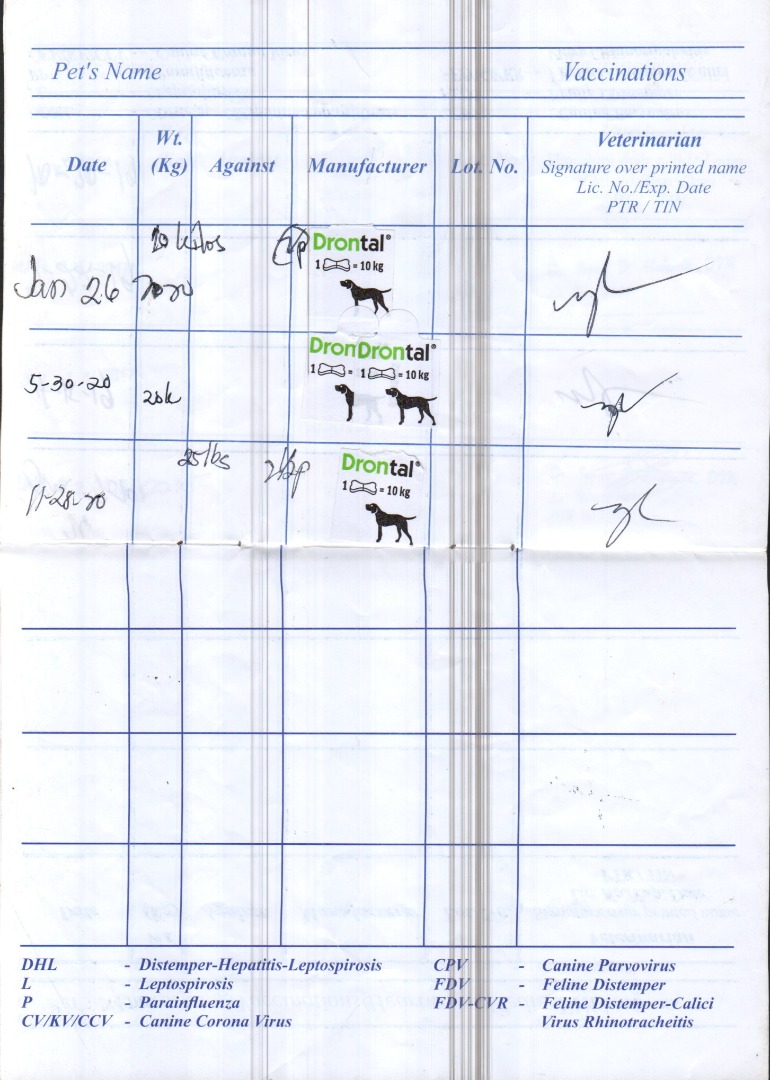 Pet's Name Vaccinations
Date Wt. (Kg) Against Manufacturer Lot. No. Veterinarian
Signature over printed name
Lic. No./Exp. Date
PTR / TIN
20 kilos Drontal®
1 = 10 kg
Jan 26 2020
DronDrontal®
1 = 1 = 10 kg
5-30-20 20k
25 lbs Drontal®
1 = 10 kg
11-28-20
DHL - Distemper-Hepatitis-Leptospirosis CPV - Canine Parvovirus
L - Leptospirosis FDV - Feline Distemper
P - Parainfluenza FDV-CVR - Feline Distemper-Calici
CV/KV/CCV - Canine Corona Virus Virus Rhinotracheitis